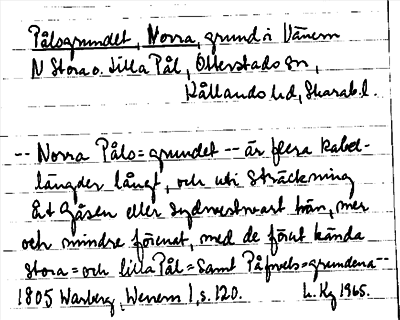 Pålsgrundet, Norra, grund i Vänern
N Stora o. Lilla Pål, Otterstads sn,
Kållands hd, Skarab. l.
-- Norra Påls=grundet -- är flera kabel-
längder långt, och uti sträckning
åt Gåsen eller sydvestvart hän, mer
och mindre förenat, med de förut kända
Stora= och lilla Pål= samt Påfvels=grundena --
1805 Warberg, Wenern 1, s. 120. L. Kg 1965.